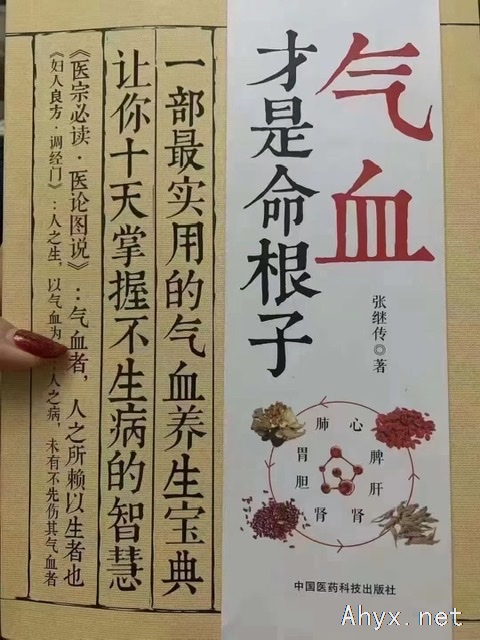 气血
才是命根子
张继传◎著
肺 心
胃 脾
胆 肝
肾 肾
中国医药科技出版社
一部最实用的气血养生宝典
让你十天掌握不生病的智慧
《医宗必读·医论图说》：气血者，人之所赖以生者也
《妇人良方·调经门》：人之生，以气血为：人之病，未有不先伤其气血者
Ahyx.net